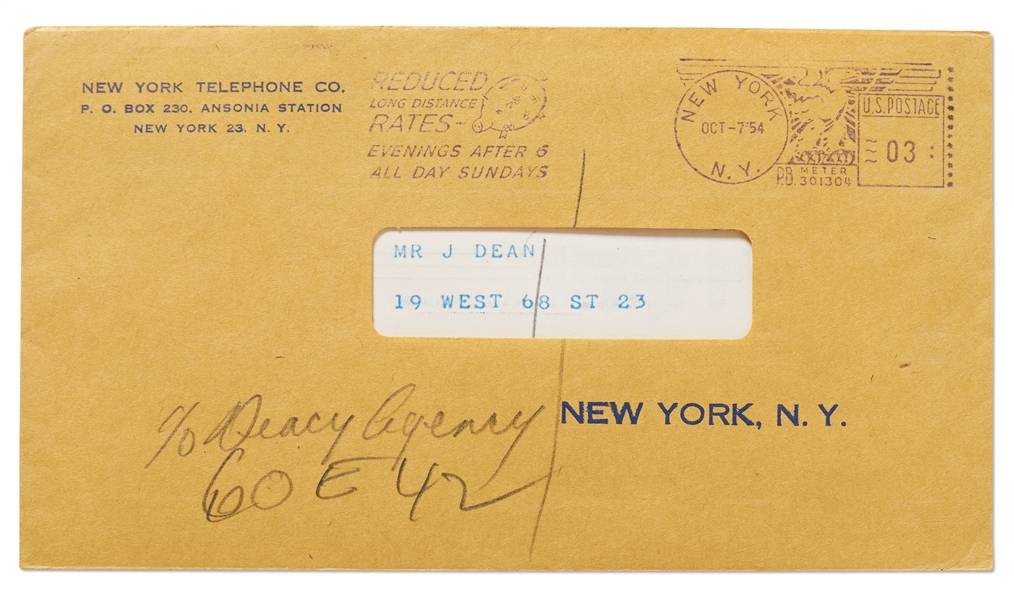 NEW YORK TELEPHONE CO.
P. O. BOX 230, ANSONIA STATION
NEW YORK 23, N. Y.
REDUCED
LONG DISTANCE
RATES-
EVENINGS AFTER 6
ALL DAY SUNDAYS
NEW YORK
OCT-7'54
N.Y.
U.S. POSTAGE
03
P.B. METER
301304
MR J DEAN
19 WEST 68 ST 23
NEW YORK, N. Y.
c/o Deacy Agency
60 E 42